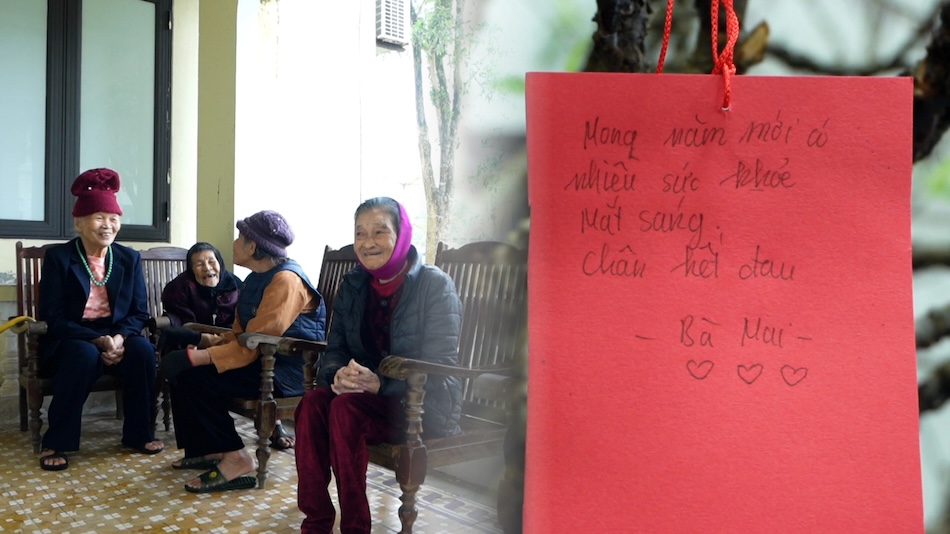 Mong năm mới có
nhiều sức khỏe
Mắt sáng.
Chân hết đau
- Bà Mai -